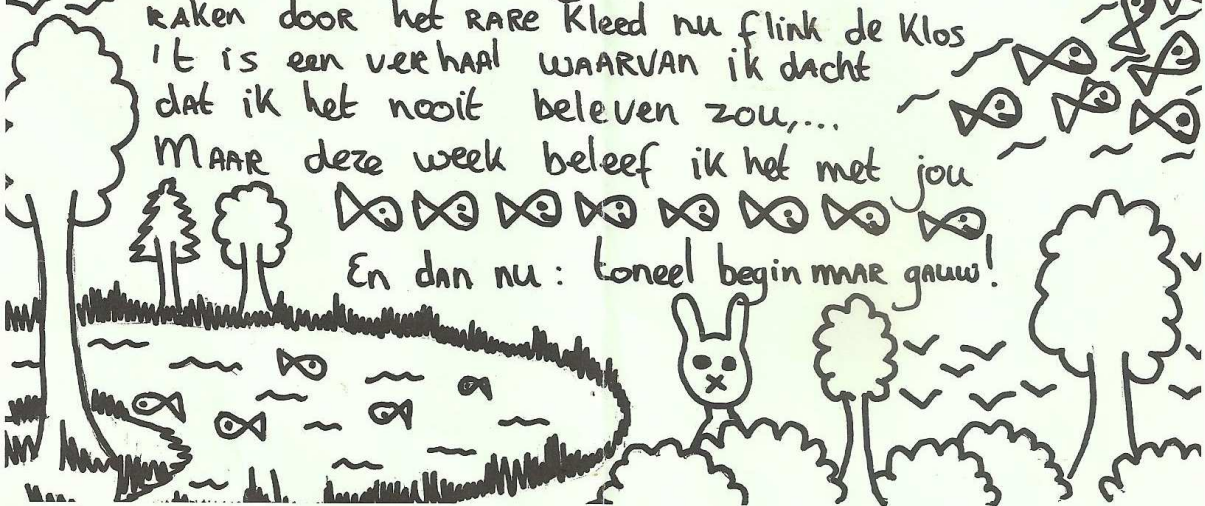 RAKEN door het RARE Kleed nu flink de Klos
't is een verhAAl WAARVAN ik dAcht
dAt ik het nooit beleven zou,...
MAAR deze week beleef ik het met jou
En dAn nu : toneel begin mAAR gAuw!